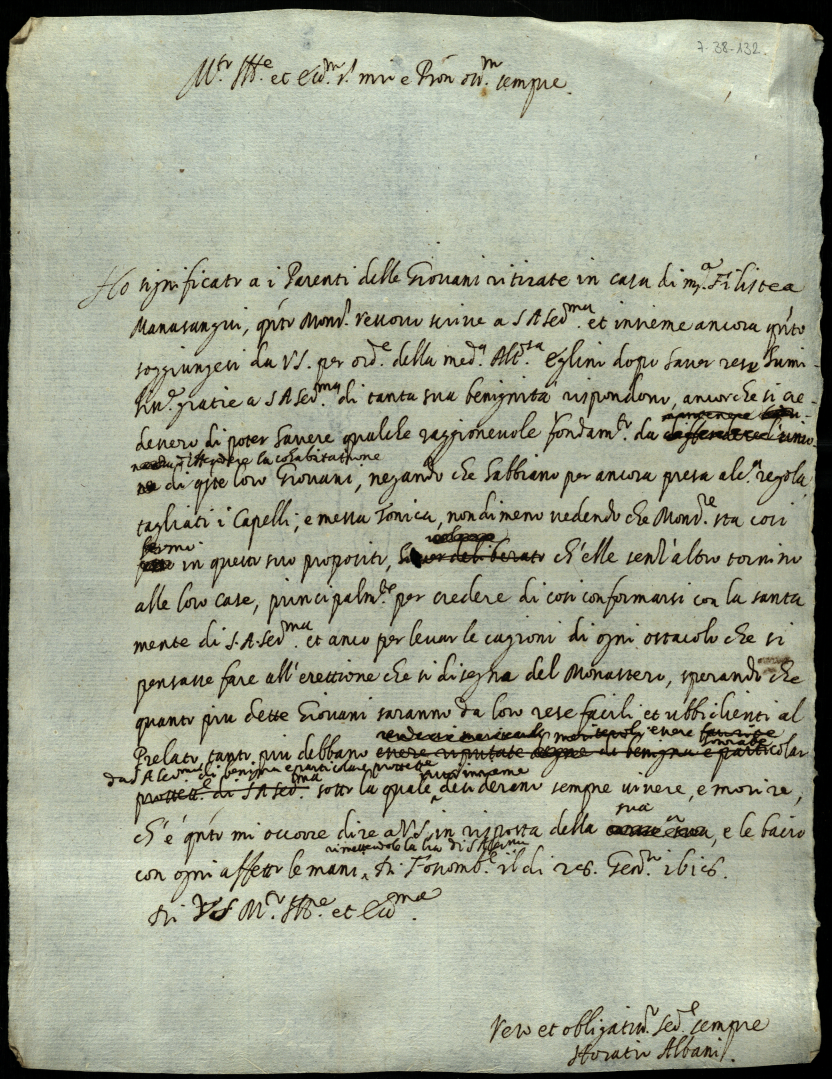 7-38-132.
M.to Ill.re et Ecc.mo S.r mio e Pron oss.mo sempre.
Ho significato a i Parenti delle Giovani ritirate in casa di m.a Filistea
Manasangui, q.nto Mons.r scrive a S A Ser.ma et insieme ancora q.nto
soggiungesi da V S. per ord.e della med.a Alt.za Eglino dopo haver rese humi-
liss.e gratie a S A Ser.ma di tanta sua benignità rispondono, ancorche si cre-
devero di poter havere qualche raggionevole fondam.to da
la cohabitatione
di q.ste loro Giovani, negando che habbiano per ancora presa alc.a regola
tagliati i Capelli, e messa Tonica, nondimeno vedendo che Mons.re sta così
fermo in questo suo proposito, haver deliberato ch'elle senz'altro tornino
alle loro case, principalm.te per credere di così conformarsi con la santa
mente di S. A Ser.ma et anco per levar le cagioni di ogni ostacolo che si
pensasse fare all'erettione che si disegna del Monastero, sperando che
quanto più dette Giovani saranno da loro rese facili et ubbidienti al
meritevoli essere
Prelato tanto più debbano essere reputate degne di benigna e particolar
da S A di benigna e particolare
protett.e di S A Ser.ma sotto la quale desiderano sempre vivere, e morire,
sua
ch'è q.nto mi occorre dire a V S. in risposta della, e le bacio
con ogni affetto le mani. Di Fossomb.e il di 26. Genn.o 1616.
Di V S M.to Ill.re et Ecc.ma
Vero et obligatiss.o Ser.e sempre
Horatio Albani.